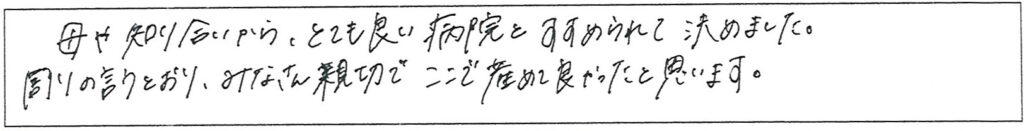 母や知り合いから、とても良い病院とすすめられて決めました。
周りの言うとおり、みなさん親切でここで産めて良かったと思います。